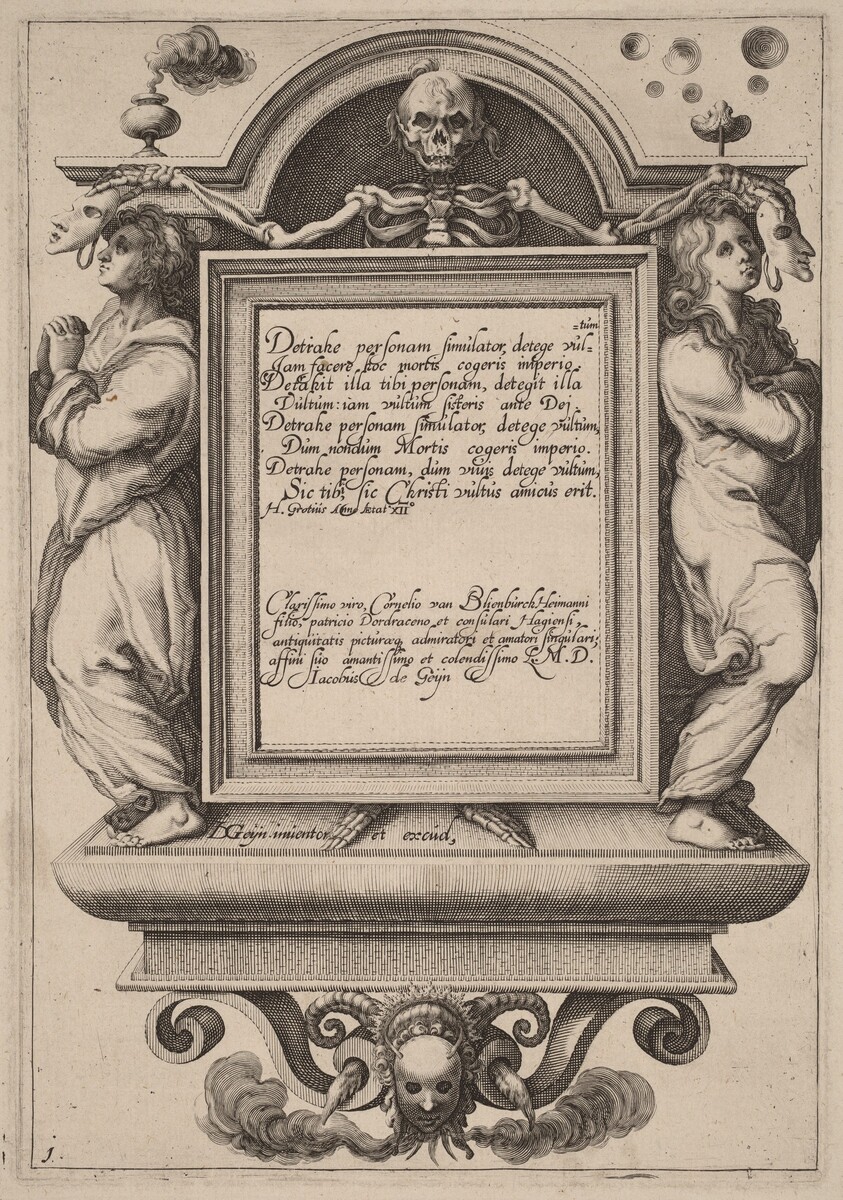 Detrahe personam simulator, detege vul=
=tum
Iam facere hoc mortis cogeris imperio.
Detrahit illa tibi personam, detegit illa
Vultum: iam vultum sisteris ante Dei.
Detrahe personam simulator, detege vultum,
Dum nondum Mortis cogeris imperio.
Detrahe personam, dum viuis detege vultum,
Sic tibi, sic Christi vultus amicus erit.
H. Grotius Anno Aetat XII°
Clarissimo viro, Cornelio van Blienburch Heimanni
filio, patricio Dordraceno et consulari Hagiensi,
antiquitatis picturæq, admiratori et amatori singulari,
affini suo amantissimo et colendissimo L. M. D.
Iacobus de Geijn
IDGeijn inuentor et excud,
1.